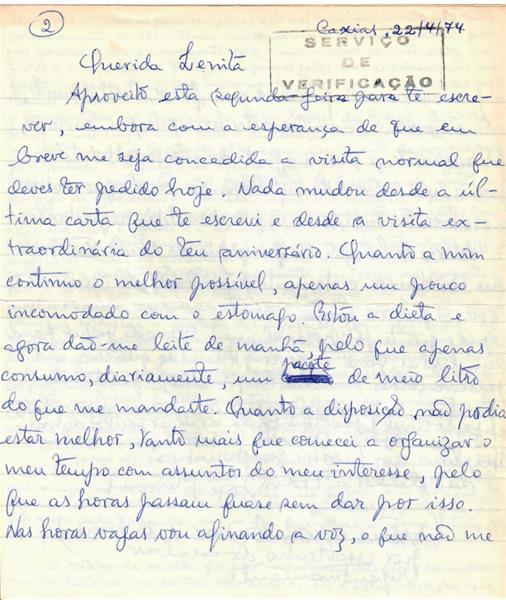 2
Caxias, 22/4/74
SERVIÇO
DE
VERIFICAÇÃO
Querida Lenita
Aproveito esta segunda-feira para te escre-
ver, embora com a esperança de que em
breve me seja concedida a visita normal que
deves ter pedido hoje. Nada mudou desde a úl-
tima carta que te escrevi e desde a visita ex-
traordinária do teu aniversário. Quanto a mim
continuo o melhor possível, apenas um pouco
incomodado com o estomago. Estou a dieta e
agora dão-me leite de manhã pelo que apenas
consumo, diariamente, um pacote de meio litro
do que me mandaste. Quanto a disposição não podia
estar melhor, tanto mais que comecei a organizar o
meu tempo com assuntos do meu interesse, pelo
que as horas passam quase sem dar por isso.
Nas horas vagas vou afinando a voz, o que não me